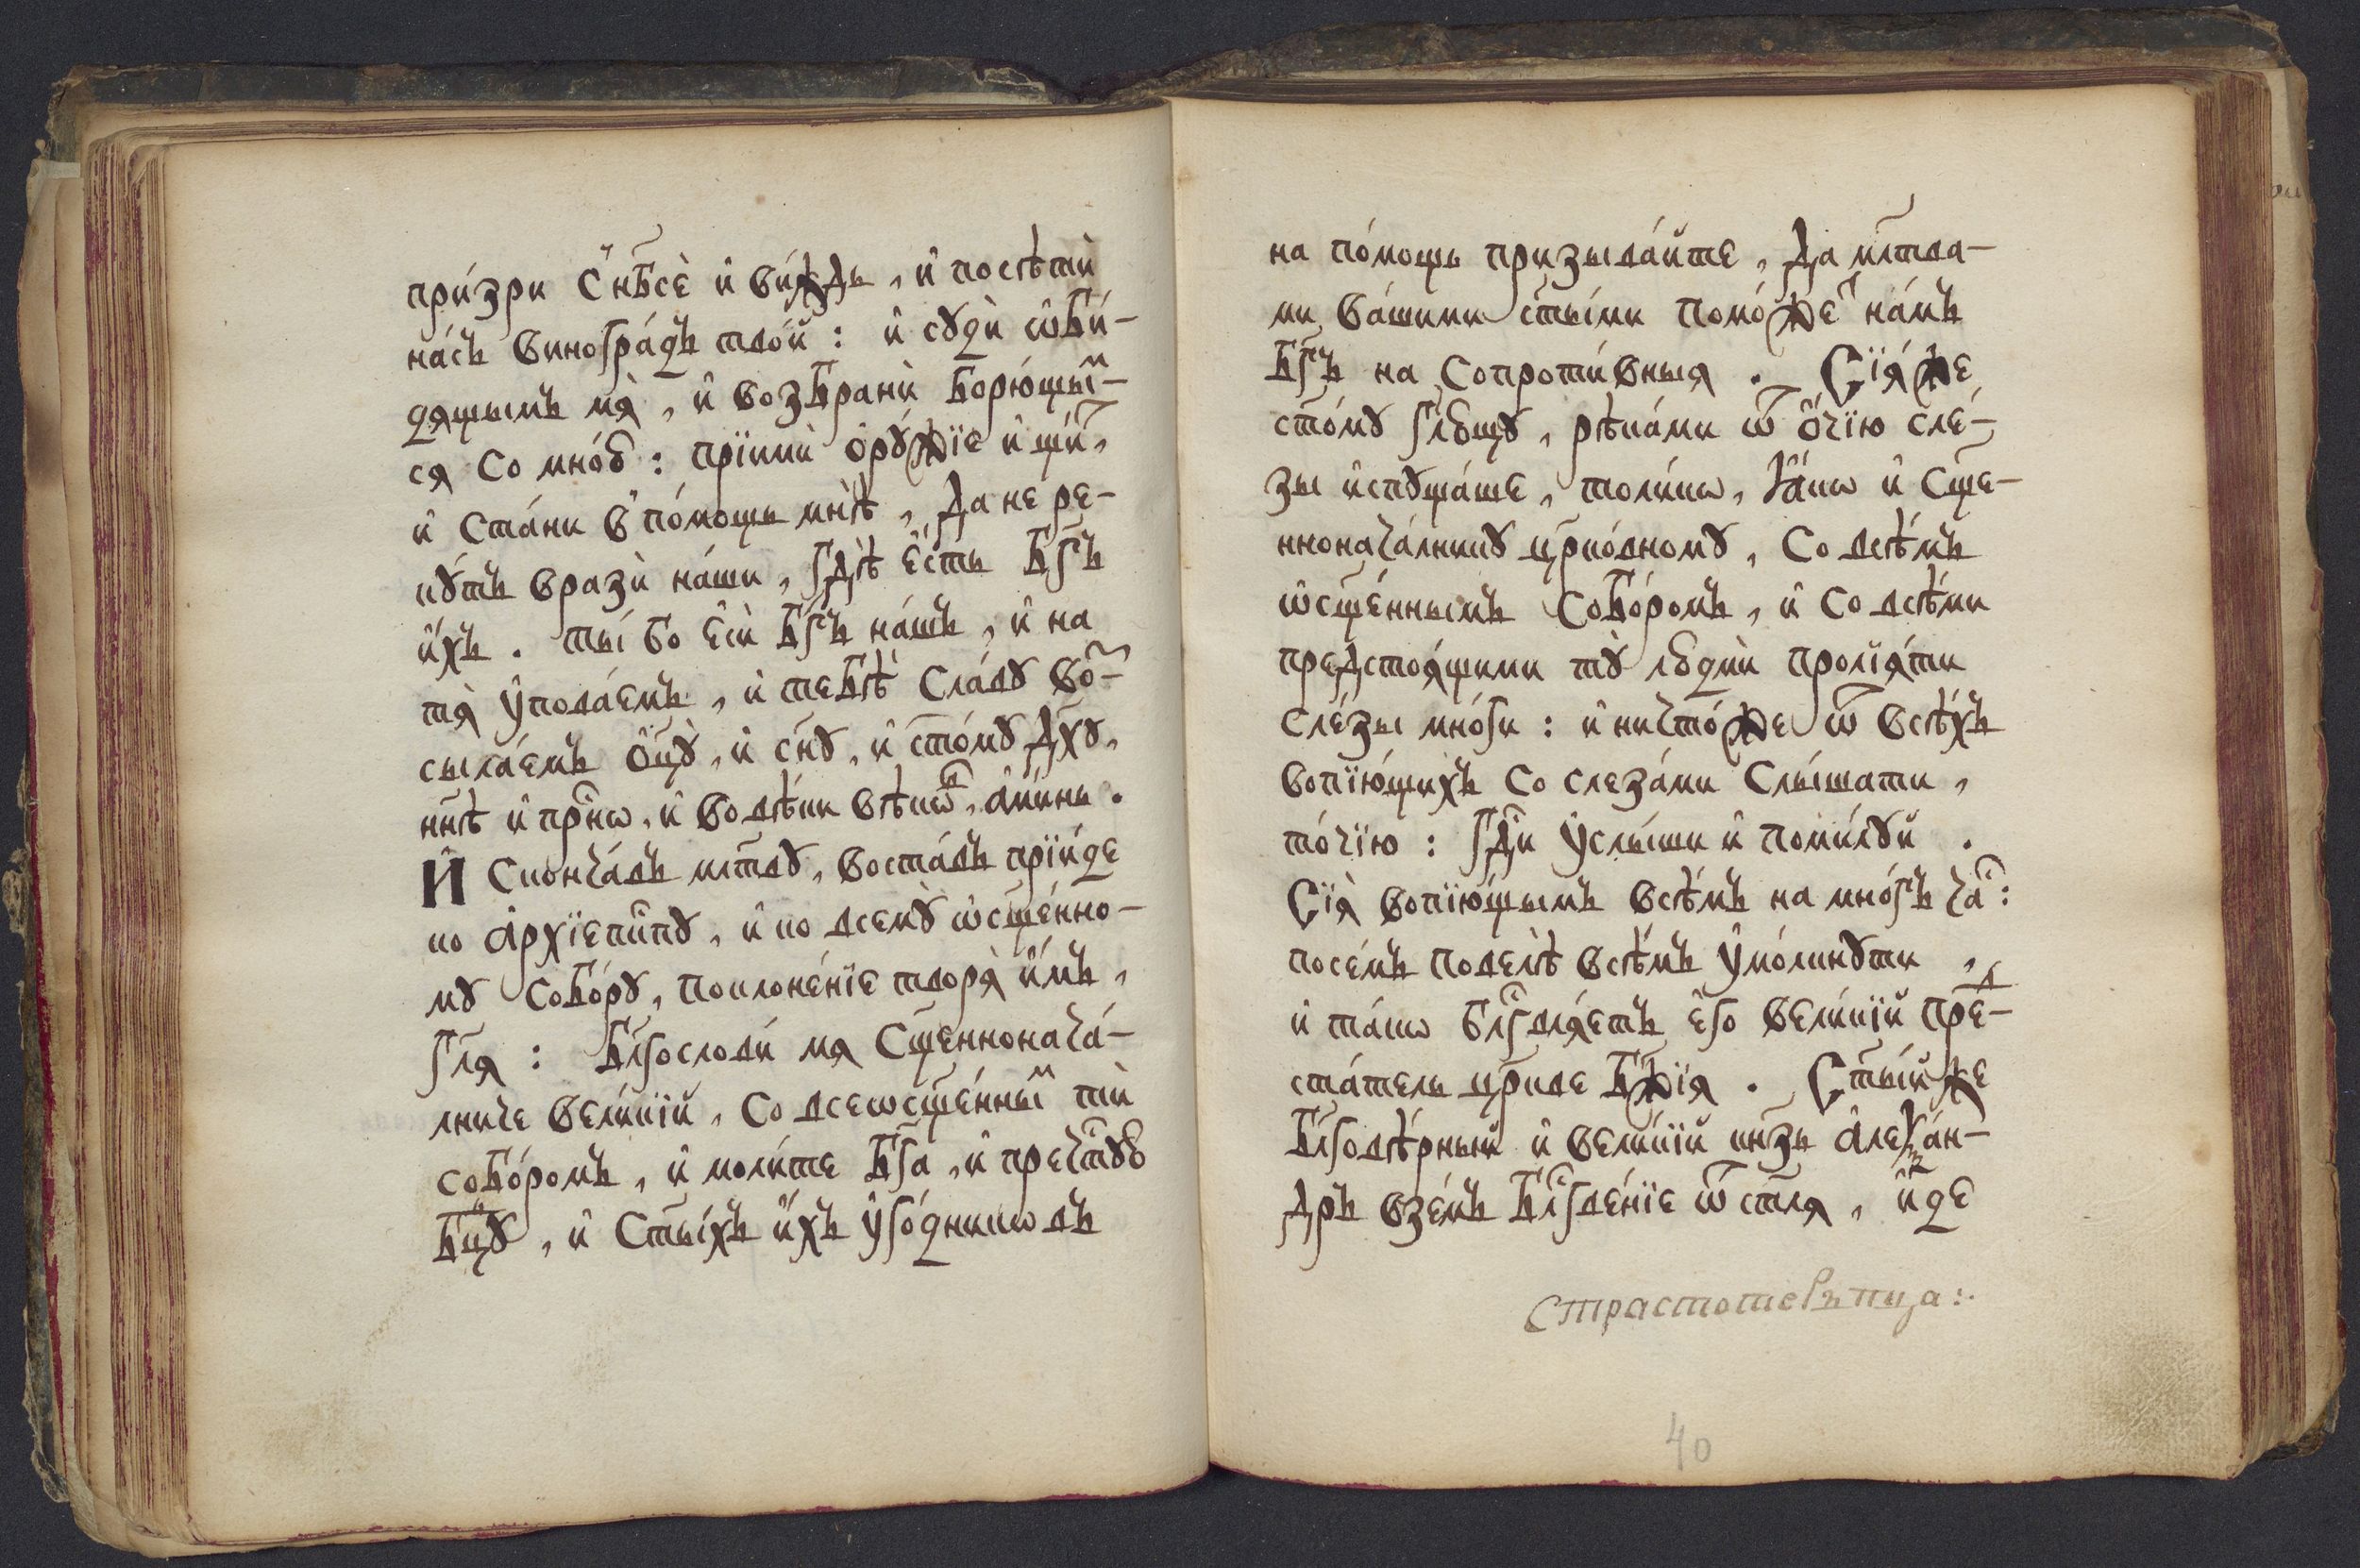 при́зри С нб҃сѐ и҆ ви́ждь , и҆ посѣтѝ
на́съ виногра́дъ тво́й : и҆ сꙋдѝ ѡ҆би́-
дящымъ мѧ̀ , и҆ возбранѝ борю́щыⷨ-
сѧ со мно́ю : прїимѝ ѻ҆рꙋ́жїе и҆ щи́ⷮ,
и҆ ста́ни в по́мощь мнѣ̀ , да не ре-
кꙋ́тъ вразѝ на́ши , гдѣ̀ є҆́сть бг҃ъ
и҆́хъ . ты́ бо є҆сѝ бг҃ъ на́шъ , и҆ на
тѧ̀ ᲂу҆пова́емъ , и҆ тебѣ̀ сла́вꙋ воⷥ-
сыла́емъ ѻ҆ц҃ꙋ̀ , и҆ сн҃ꙋ , и҆ ст҃о́мꙋ дх҃ꙋ ,
нн҃ѣ и҆ при́снѡ , и҆ во вѣ́ки вѣкѡⷡ , а҆ми́нь .
И҆ сконча́въ мл҃твꙋ , воста́въ прїи́де
ко а҆рхїепⷭ҇кпꙋ , и҆ ко всемꙋ̀ ѡ҆сщ҃е́нно-
мꙋ собо́рꙋ , поклоне́нїе творѧ̀ и҆̀мъ ,
гл҃ѧ : бл҃гослови́ мѧ сщ҃еннонача́-
лниче вели́кїй , со всеѡсщ҃е́нныⷨ тѝ
собо́ромъ , и҆ моли́те бг҃а , и҆ пречⷭ҇тꙋю
бцⷣꙋ , и҆ ст҃ы́хъ и҆́хъ ᲂу҆го́дникѡвъ
на по́мощь призыва́йте , да мл҃тва-
ми ва́шими ст҃ы́ми помо́жеⷮ на́мъ
бг҃ъ на сопроти́вныѧ . Сїѧ́же
ст҃о́мꙋ гл҃ющꙋ , рѣка́ми ѿ ѻ҆́чїю сле́-
зы и҆спꙋща́ше , толи́кѡ , ꙗ҆́кѡ и҆ сщ҃е-
ннонача́лникꙋ цр҃ко́вномꙋ , со всѣ́мъ
ѡ҆сщ҃е́ннымъ собо́ромъ , и҆ со всѣ́ми
предстоѧ́щими тꙋ̀ людмѝ пролїѧ́ти
сле́зы мно́ги : и҆ ничто́же ѿ всѣ́хъ
вопїю́щихъ со слеза́ми слы́шати ,
то́чїю : гдⷭ҇и ᲂу҆слы́ши и҆ поми́лꙋй .
Сїѧ̀ вопїю́щымъ всѣ́мъ на мно́гъ чаⷭ҇ :
посе́мъ повелѣ̀ всѣ́мъ ᲂу҆мо́лкнꙋти ,
и҆ та́кѡ блⷭ҇гвлѧ́етъ є҆го вели́кїй преⷣ-
ста́тель цр҃кве бж҃їѧ . Ст҃ы́йже
бл҃говѣ́рный и҆ вели́кїй кнѧ҃зь а҆леѯа́н-
дръ взе́мъ блⷭ҇гве́нїе ѿ ст҃лѧ , и҆́де
страстотерпца :.
40